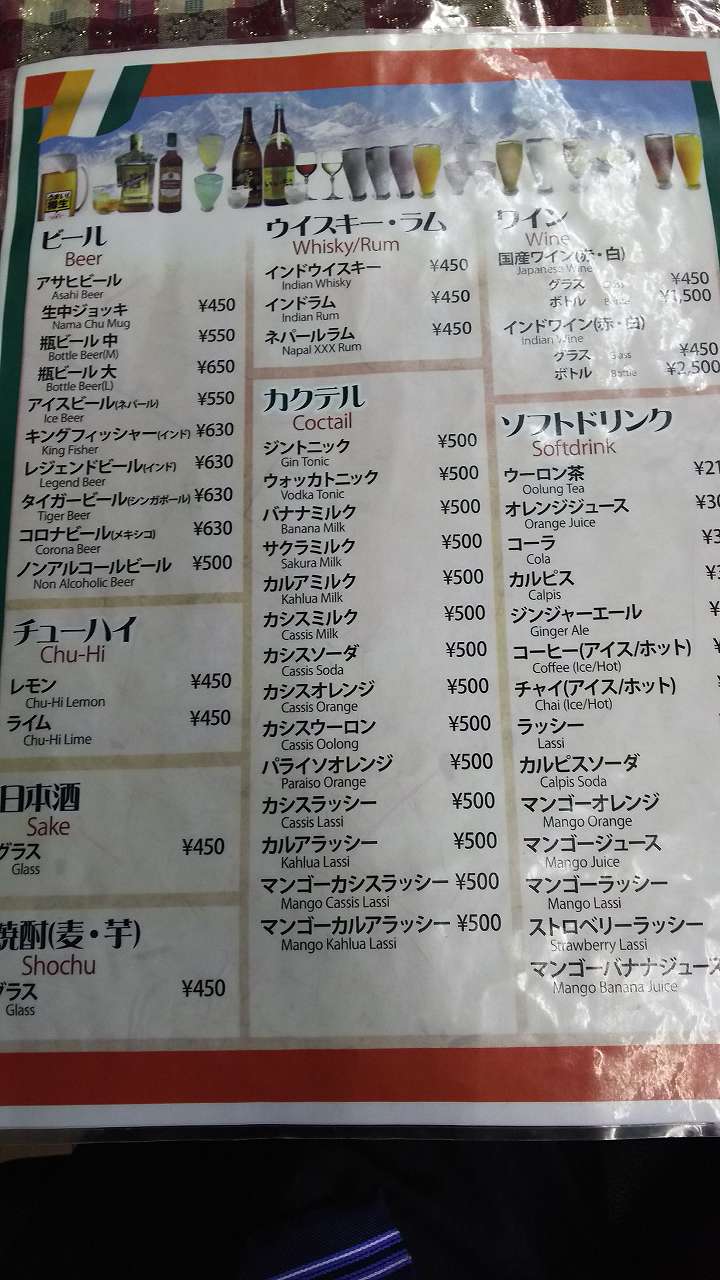 ビール
Beer
アサヒビール
Asahi Beer
生中ジョッキ ¥450
Nama Chu Mug
瓶ビール 中 ¥550
Bottle Beer(M)
瓶ビール 大 ¥650
Bottle Beer(L)
アイスビール(ネパール) ¥550
Ice Beer
キングフィッシャー(インド) ¥630
King Fisher
レジェンドビール(インド) ¥630
Legend Beer
タイガービール(シンガポール) ¥630
Tiger Beer
コロナビール(メキシコ) ¥630
Corona Beer
ノンアルコールビール ¥500
Non Alcoholic Beer
チューハイ
Chu-Hi
レモン ¥450
Chu-Hi Lemon
ライム ¥450
Chu-Hi Lime
日本酒
Sake
グラス ¥450
Glass
焼酎(麦・芋)
Shochu
グラス ¥450
Glass
ウイスキー・ラム
Whisky/Rum
インドウイスキー ¥450
Indian Whisky
インドラム ¥450
Indian Rum
ネパールラム ¥450
Napal XXX Rum
カクテル
Coctail
ジントニック ¥500
Gin Tonic
ウォッカトニック ¥500
Vodka Tonic
バナナミルク ¥500
Banana Milk
サクラミルク ¥500
Sakura Milk
カルアミルク ¥500
Kahlua Milk
カシスミルク ¥500
Cassis Milk
カシスソーダ ¥500
Cassis Soda
カシスオレンジ ¥500
Cassis Orange
カシスウーロン ¥500
Cassis Oolong
パライソオレンジ ¥500
Paraiso Orange
カシスラッシー ¥500
Cassis Lassi
カルアラッシー ¥500
Kahlua Lassi
マンゴーカシスラッシー ¥500
Mango Cassis Lassi
マンゴーカルアラッシー ¥500
Mango Kahlua Lassi
ワイン
Wine
国産ワイン(赤・白)
Japanese Wine
グラス ¥450
ボトル Bottle ¥1,500
インドワイン(赤・白)
Indian Wine
グラス ¥450
ボトル Bottle ¥2,500
ソフトドリンク
Softdrink
ウーロン茶
Oolung Tea
オレンジジュース
Orange Juice
コーラ
Cola
カルピス
Calpis
ジンジャーエール
Ginger Ale
コーヒー(アイス/ホット)
Coffee (Ice/Hot)
チャイ(アイス/ホット)
Chai (Ice/Hot)
ラッシー
Lassi
カルピスソーダ
Calpis Soda
マンゴーオレンジ
Mango Orange
マンゴージュース
Mango Juice
マンゴーラッシー
Mango Lassi
ストロベリーラッシー
Strawberry Lassi
マンゴーバナナジュース
Mango Banana Juice